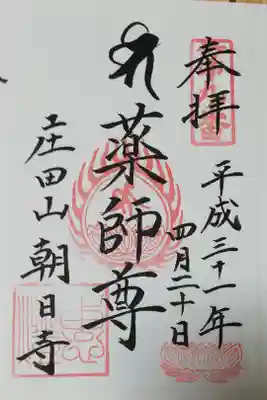 奉拝
平成三十一年
四月二十日
薬師尊
庄田山
朝日寺